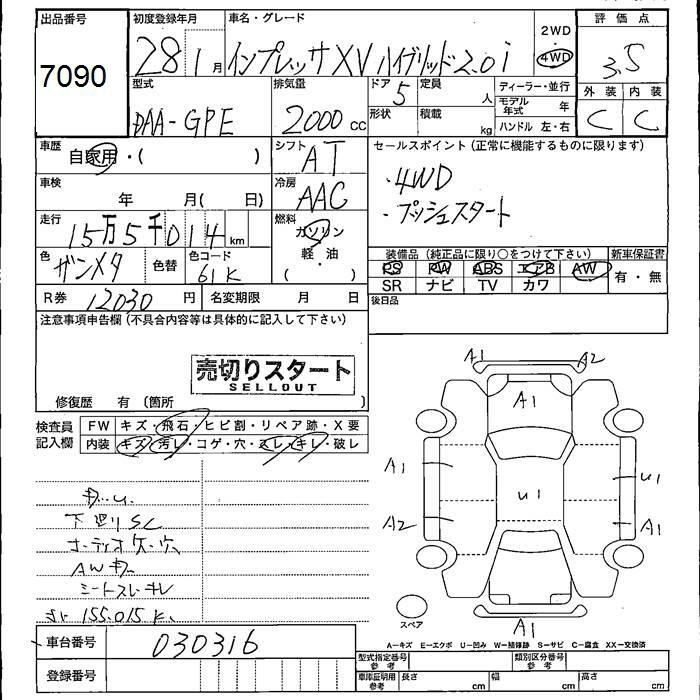 出品番号 初度登録年月 車名・グレード 2WD 評価点
7090 28 1月 インプレッサXVハイブリッド2.0i 4WD 3.5
型式 排気量 ドア 定員 ディーラー・並行 外装 内装
DAA-GPE 2000cc 5 人 モデル年式 年 C C
形状 積載 kg ハンドル 左・右
車歴 自家用・( ) シフト AT セールスポイント(正常に機能するものに限ります)
車検 年 月( 日) 冷房 AAC ・4WD
走行 15万5千014km 燃料 ガソリン ・プッシュスタート
軽・油
( )
色 ガンメタ 色替 色コード 61K 装備品(純正品に限り○をつけて下さい) 新車保証書
PS PW ABS エアB AW 有・無
SR ナビ TV カワ
R券 12030円 名変期限 月 日 後日品
注意事項申告欄(不具合内容等は具体的に記入して下さい)
売切りスタート
SELLOUT
修復歴 有(箇所
検査員記入欄 FW キズ・飛石・ヒビ割・リペア跡・X要
内装 キズ・汚レ・コゲ・穴・スレ・キレ・破レ
A1 A2
A1
A1 U1
U1
A2 A1
A1
下廻りSC
AWキズ
シートスレ・キレ
155.015K
スペア
A-キズ E-エクボ U-凹み W-補修跡 S-サビ C-腐食 XX-交換済
車台番号 030316
型式指定番号 参考 類別区分番号 参考
登録番号
車庫証明用 参考 長さ cm 幅 cm 高さ cm